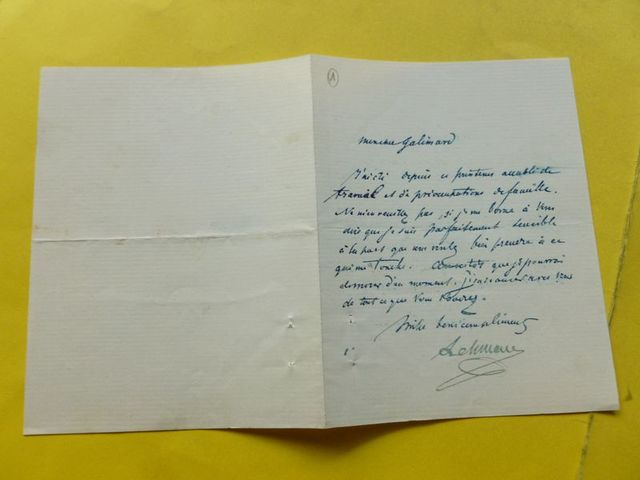 1
monsieur Galimard
J'ai été depuis ce printems accablé de
travail et de préoccupations de famille.
Ne m'en veuillez pas, si je me borne à vous
dire que je suis parfaitement sensible
à la part que vous voulez bien prendre à ce
qui me touche. que je pourrai
d'un moment. avec vous
de tout ce que vous voudrez.
mille bons compliments
Lehmann